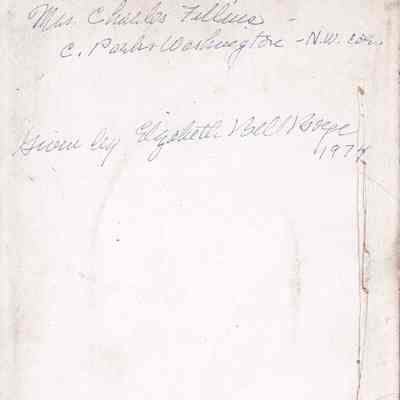 Mrs. Charles Fillius -
c. Park & Washington - N.W. cor.
Given by Elizabeth Bell
1974